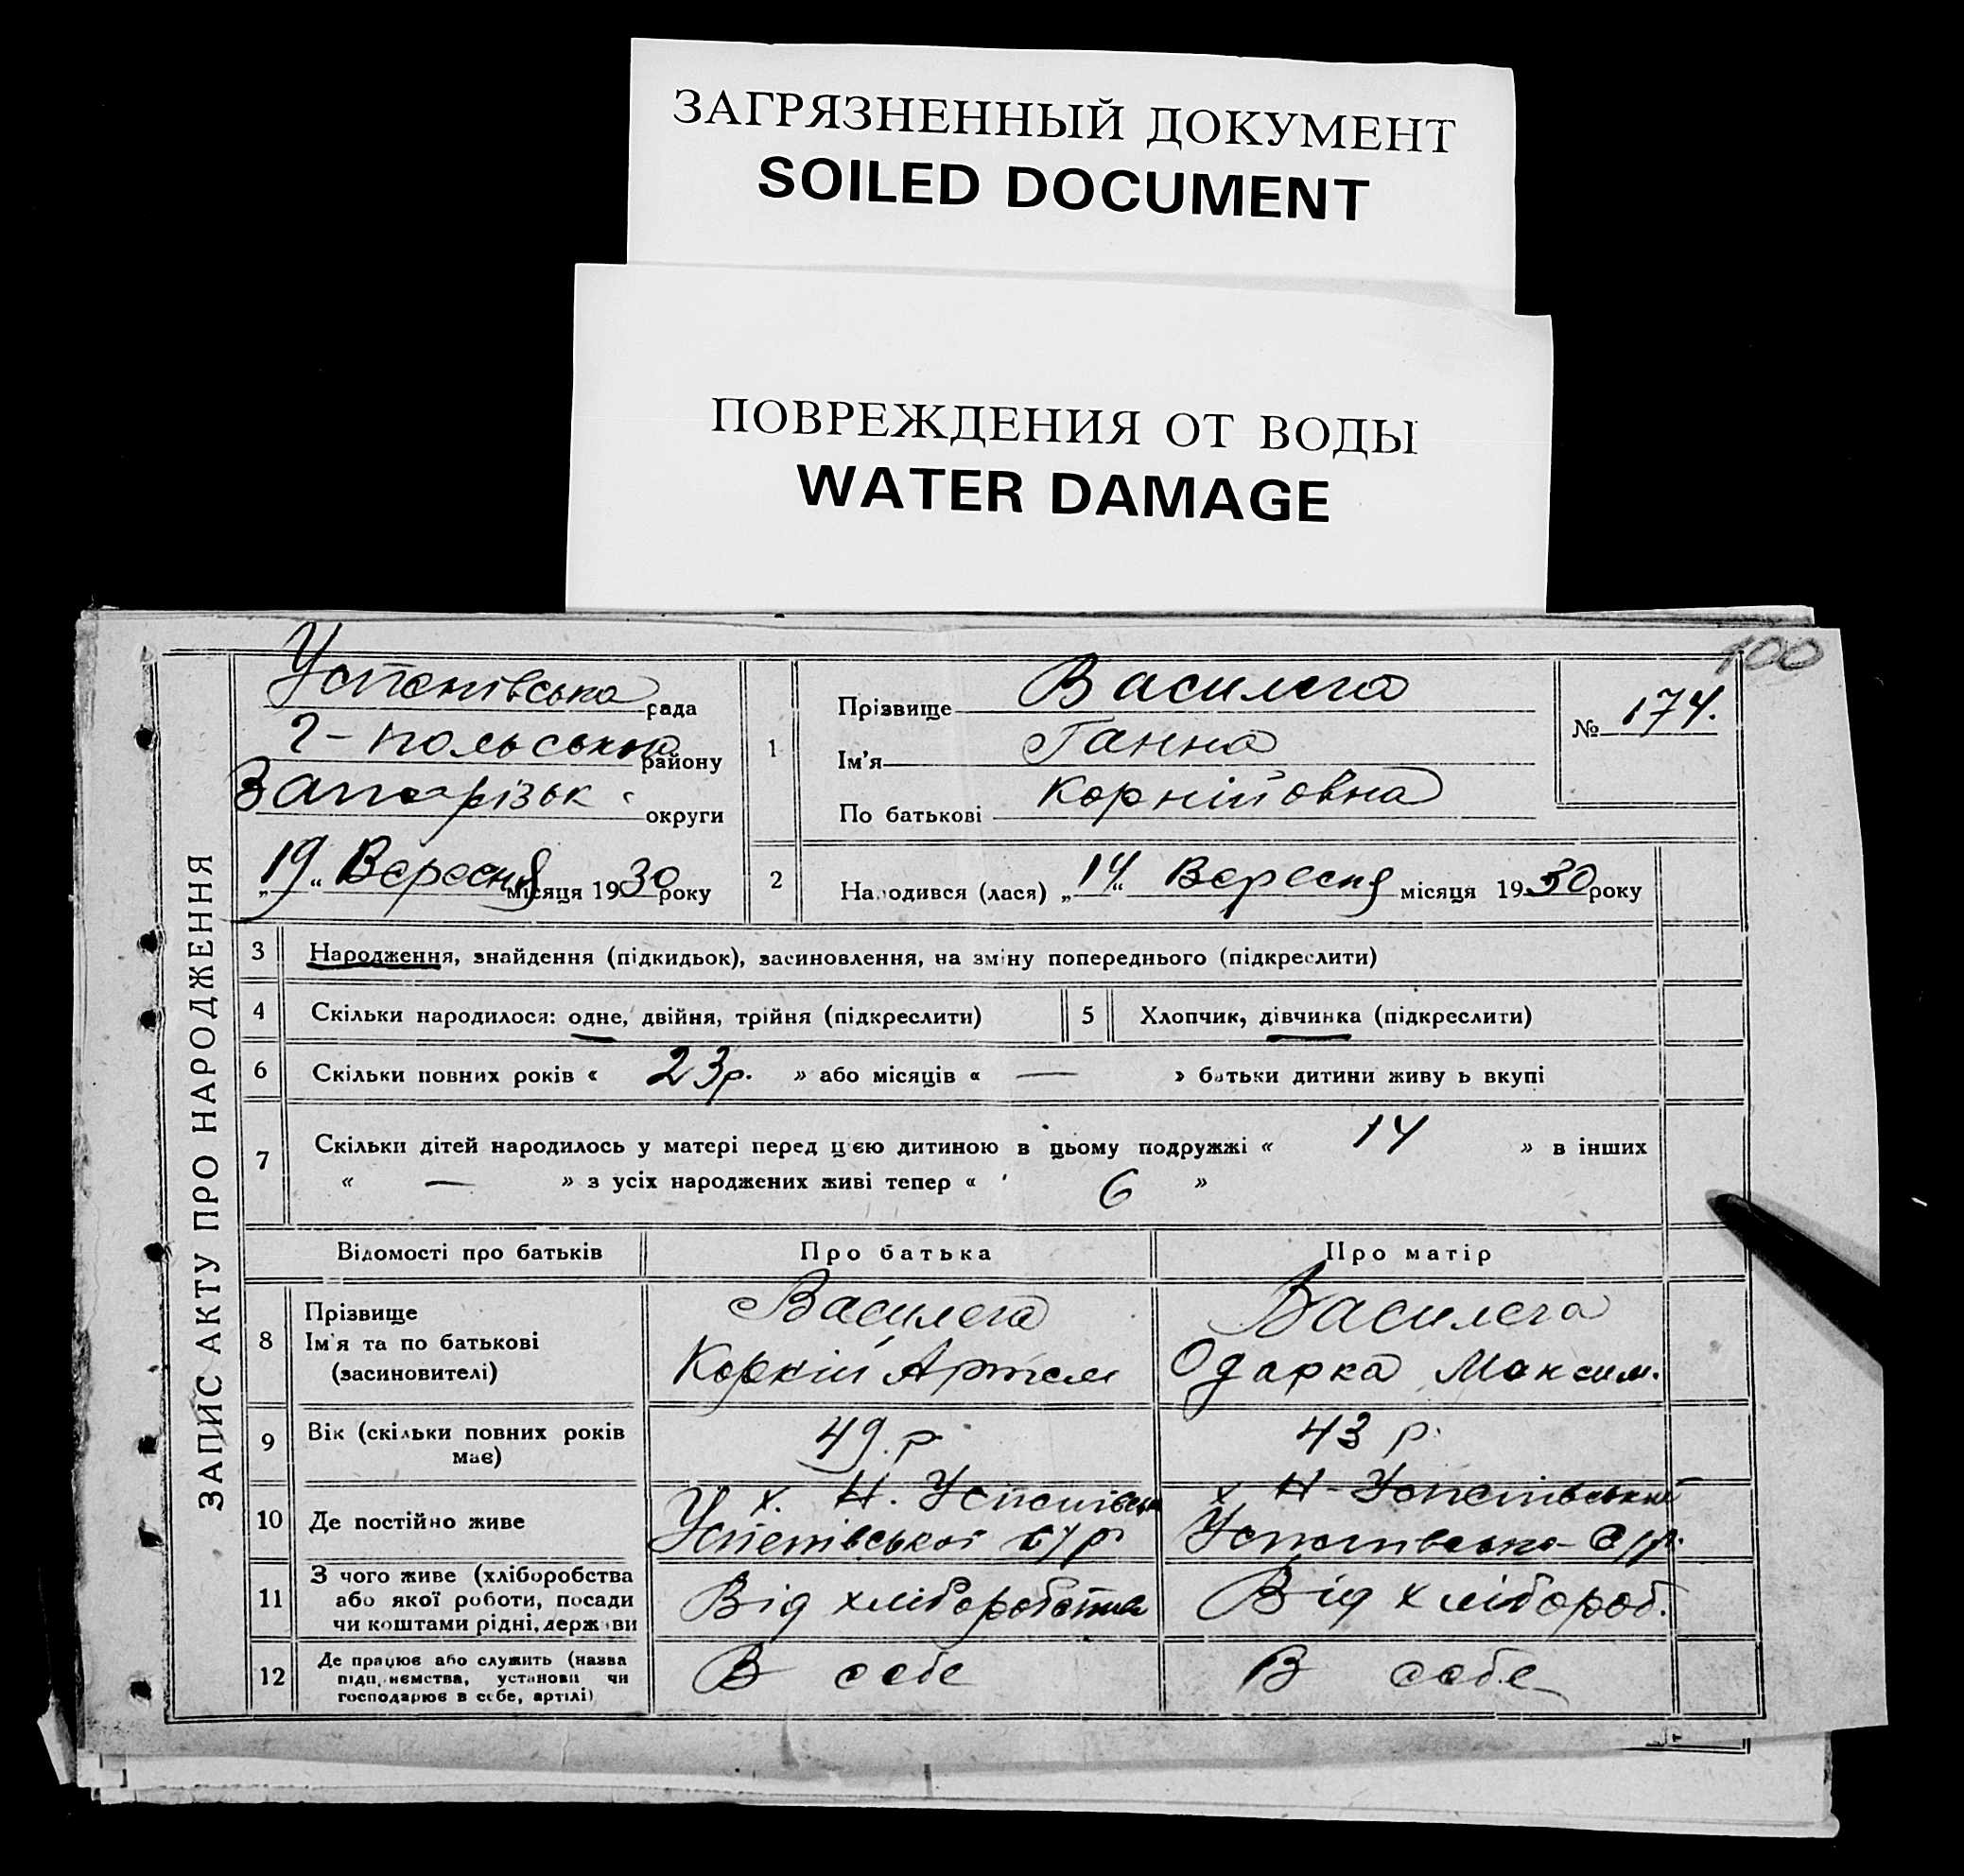 ЗАГРЯЗНЕННЫЙ ДОКУМЕНТ
SOILED DOCUMENT
ПОВРЕЖДЕНИЯ ОТ ВОДЫ
WATER DAMAGE
100
ЗАПИС АКТУ ПРО НАРОДЖЕННЯ
Успенівська рада
Г-польська району
Запорізьк. округи
„19“ Вересня місяця 1930 року
1
Прізвище Василега
Ім'я Ганна
По батькові Корнійовна
№ 174.
2 Народився (лася) „14“ Вересня місяця 1930 року
3 Народження, знайдення (підкидьок), засиновлення, на зміну попереднього (підкреслити)
4 Скільки народилося: одне, двійня, трійня (підкреслити) 5 Хлопчик, дівчинка (підкреслити)
6 Скільки повних років « 23р. » або місяців « — » батьки дитини живу ь вкупі
7 Скільки дітей народилось у матері перед цією дитиною в цьому подружжі « 14 » в інших
« — » з усіх народжених живі тепер « 6 »
Відомості про батьків Про батька Про матір
8 Прізвище
Ім'я та по батькові
(засиновителі)
Василега
Корній Артем
Василега
Одарка Максим.
9 Вік (скільки повних років
має)
49.р. 43 р.
10 Де постійно живе
х. Н. Успенівськ
Успенівської с/р
х Н-Успенівський
Успенівсько с/р.
11 З чого живе (хліборобства
або якої роботи, посади
чи коштами рідні, держави
Від хліборобства Від хлібороб.
12 Де працює або служить (назва
підприємства, установи чи
господарює в себе, артілі)
В себе В себе